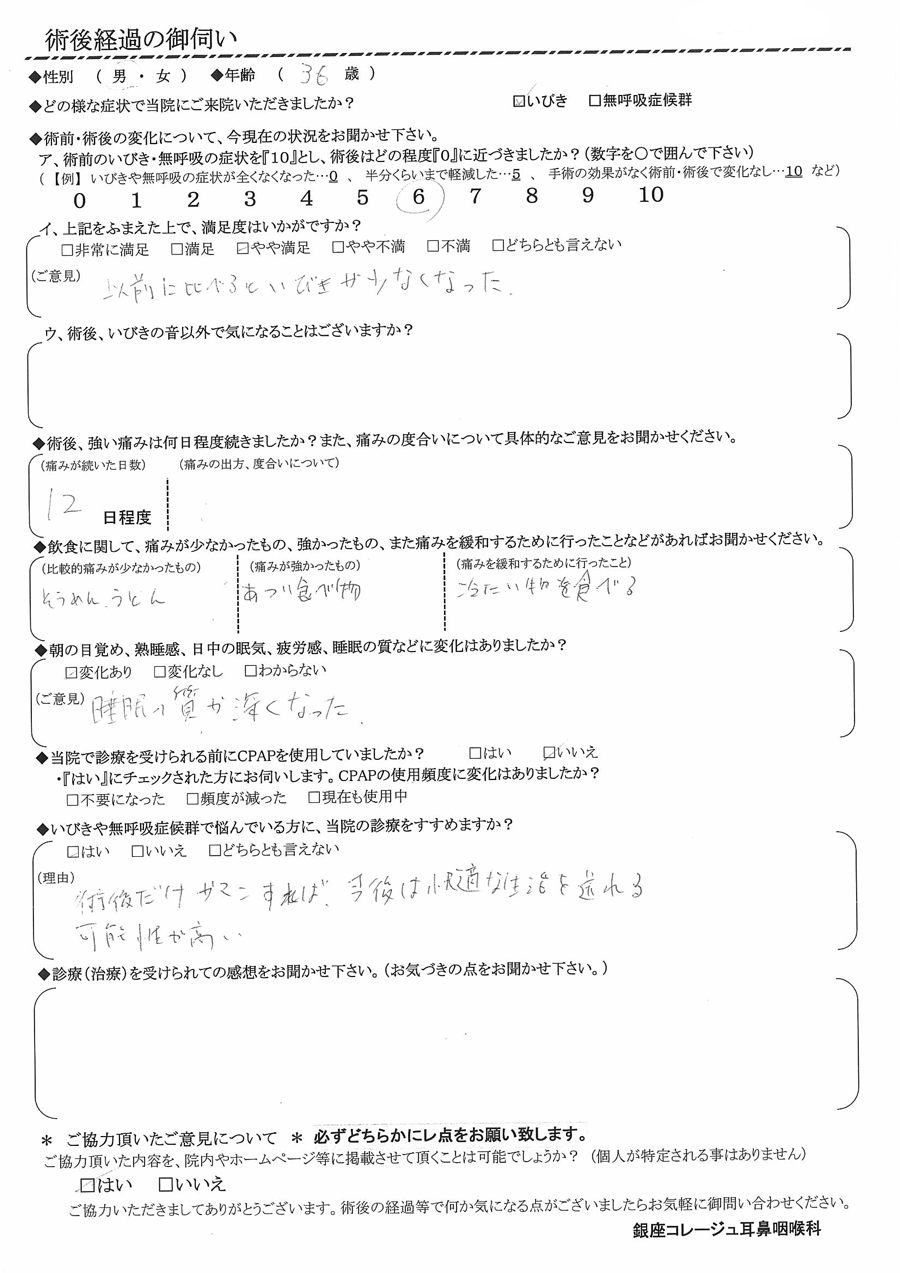 術後経過の御伺い
◆性別 （ 男 ・ 女 ） ◆年齢 （ 36 歳 ）
◆どの様な症状で当院にご来院いただきましたか？ ☑いびき □無呼吸症候群
◆術前・術後の変化について、今現在の状況をお聞かせ下さい。
ア、術前のいびき・無呼吸の症状を『10』とし、術後はどの程度『0』に近づきましたか？（数字を○で囲んで下さい）
（ 【例】 いびきや無呼吸の症状が全くなくなった…0 、 半分くらいまで軽減した…5 、 手術の効果がなく術前・術後で変化なし…10 など）
0 1 2 3 4 5 6 7 8 9 10
イ、上記をふまえた上で、満足度はいかがですか？
□非常に満足 □満足 ☑やや満足 □やや不満 □不満 □どちらとも言えない
（ご意見） 以前に比べるといびきが少なくなった.
ウ、術後、いびきの音以外で気になることはございますか？
◆術後、強い痛みは何日程度続きましたか？また、痛みの度合いについて具体的なご意見をお聞かせください。
（痛みが続いた日数） （痛みの出方、度合いについて）
12 日程度
◆飲食に関して、痛みが少なかったもの、強かったもの、また痛みを緩和するために行ったことなどがあればお聞かせください。
（比較的痛みが少なかったもの） （痛みが強かったもの） （痛みを緩和するために行ったこと）
そうめん、うどん あつい食べ物 冷たい物を食べる
◆朝の目覚め、熟睡感、日中の眠気、疲労感、睡眠の質などに変化はありましたか？
☑変化あり □変化なし □わからない
（ご意見） 睡眠の質が深くなった.
◆当院で診療を受けられる前にCPAPを使用していましたか？ □はい ☑いいえ
・『はい』にチェックされた方にお伺いします。CPAPの使用頻度に変化はありましたか？
□不要になった □頻度が減った □現在も使用中
◆いびきや無呼吸症候群で悩んでいる方に、当院の診療をすすめますか？
☑はい □いいえ □どちらとも言えない
（理由） 術後だけガマンすれば、今後は快適な生活を送れる
可能性が高い
◆診療（治療）を受けられての感想をお聞かせ下さい。（お気づきの点をお聞かせ下さい。）
＊ ご協力頂いたご意見について ＊ 必ずどちらかにレ点をお願い致します。
ご協力頂いた内容を、院内やホームページ等に掲載させて頂くことは可能でしょうか？ （個人が特定される事はありません）
☑はい □いいえ
ご協力いただきましてありがとうございます。術後の経過等で何か気になる点がございましたらお気軽に御問い合わせください。
銀座コレージュ耳鼻咽喉科